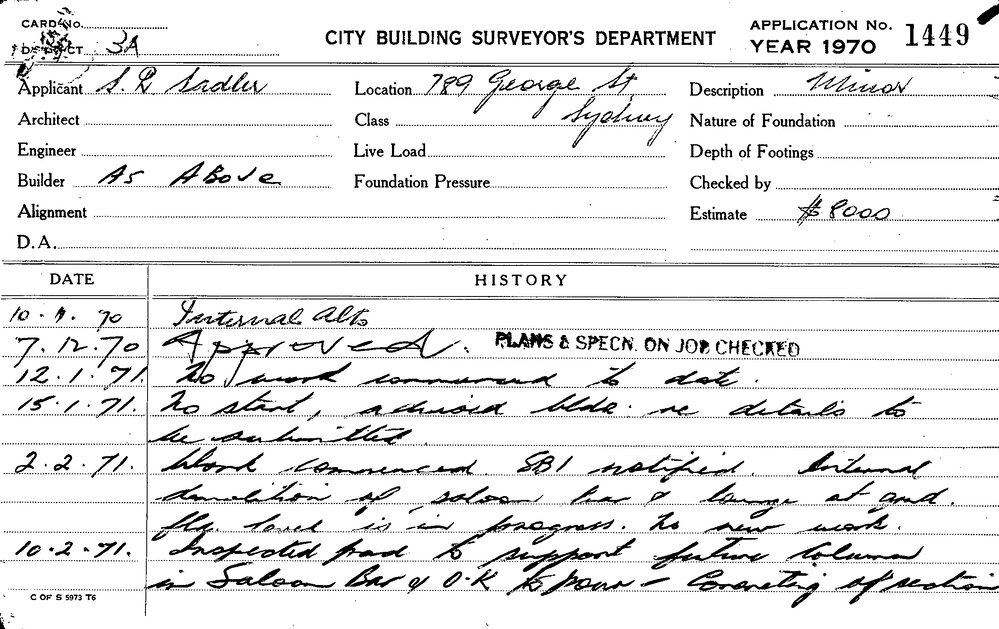 CARD No.
DISTRICT 3A
CITY BUILDING SURVEYOR'S DEPARTMENT
APPLICATION No. 1449
YEAR 1970
Applicant S. R Sadler
Location 789 George St
Sydney
Description Minor
Architect
Class
Nature of Foundation
Engineer
Live Load
Depth of Footings
Builder As Above
Foundation Pressure
Checked by
Alignment
Estimate $8000
D.A.
DATE HISTORY
70 Internal Alts
7.12.70 Approved. PLANS & SPECN. ON JOB CHECKED
12.1.71. No work commenced to date.
15.1.71. No start, advised bldr. re details to
be submitted.
2.2.71. Work commenced. SBI notified. Internal
demolition of saloon bar & lounge at grnd.
flr. level is in progress. No new work.
10.2.71. Inspected pad to support future Column
in Saloon Bar & O.K to pour – Concreting of section
C OF S 5973 T6